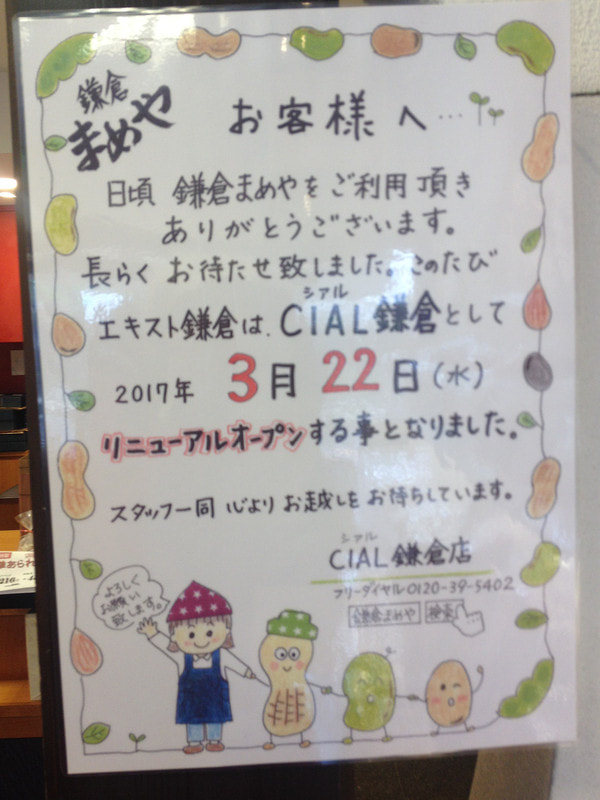 鎌倉
まめや
お客様へ…
日頃 鎌倉まめやをご利用頂き
ありがとうございます。
長らく お待たせ致しました。このたび
シアル
エキスト鎌倉は、CIAL鎌倉として
2017年 3月 22日(水)
リニューアルオープンする事となりました。
スタッフ一同 心より お越しを お待ちしています。
シアル
CIAL鎌倉店
フリーダイヤル 0120-39-5402
鎌倉まめや 検索
よろしく
お願い
致します。